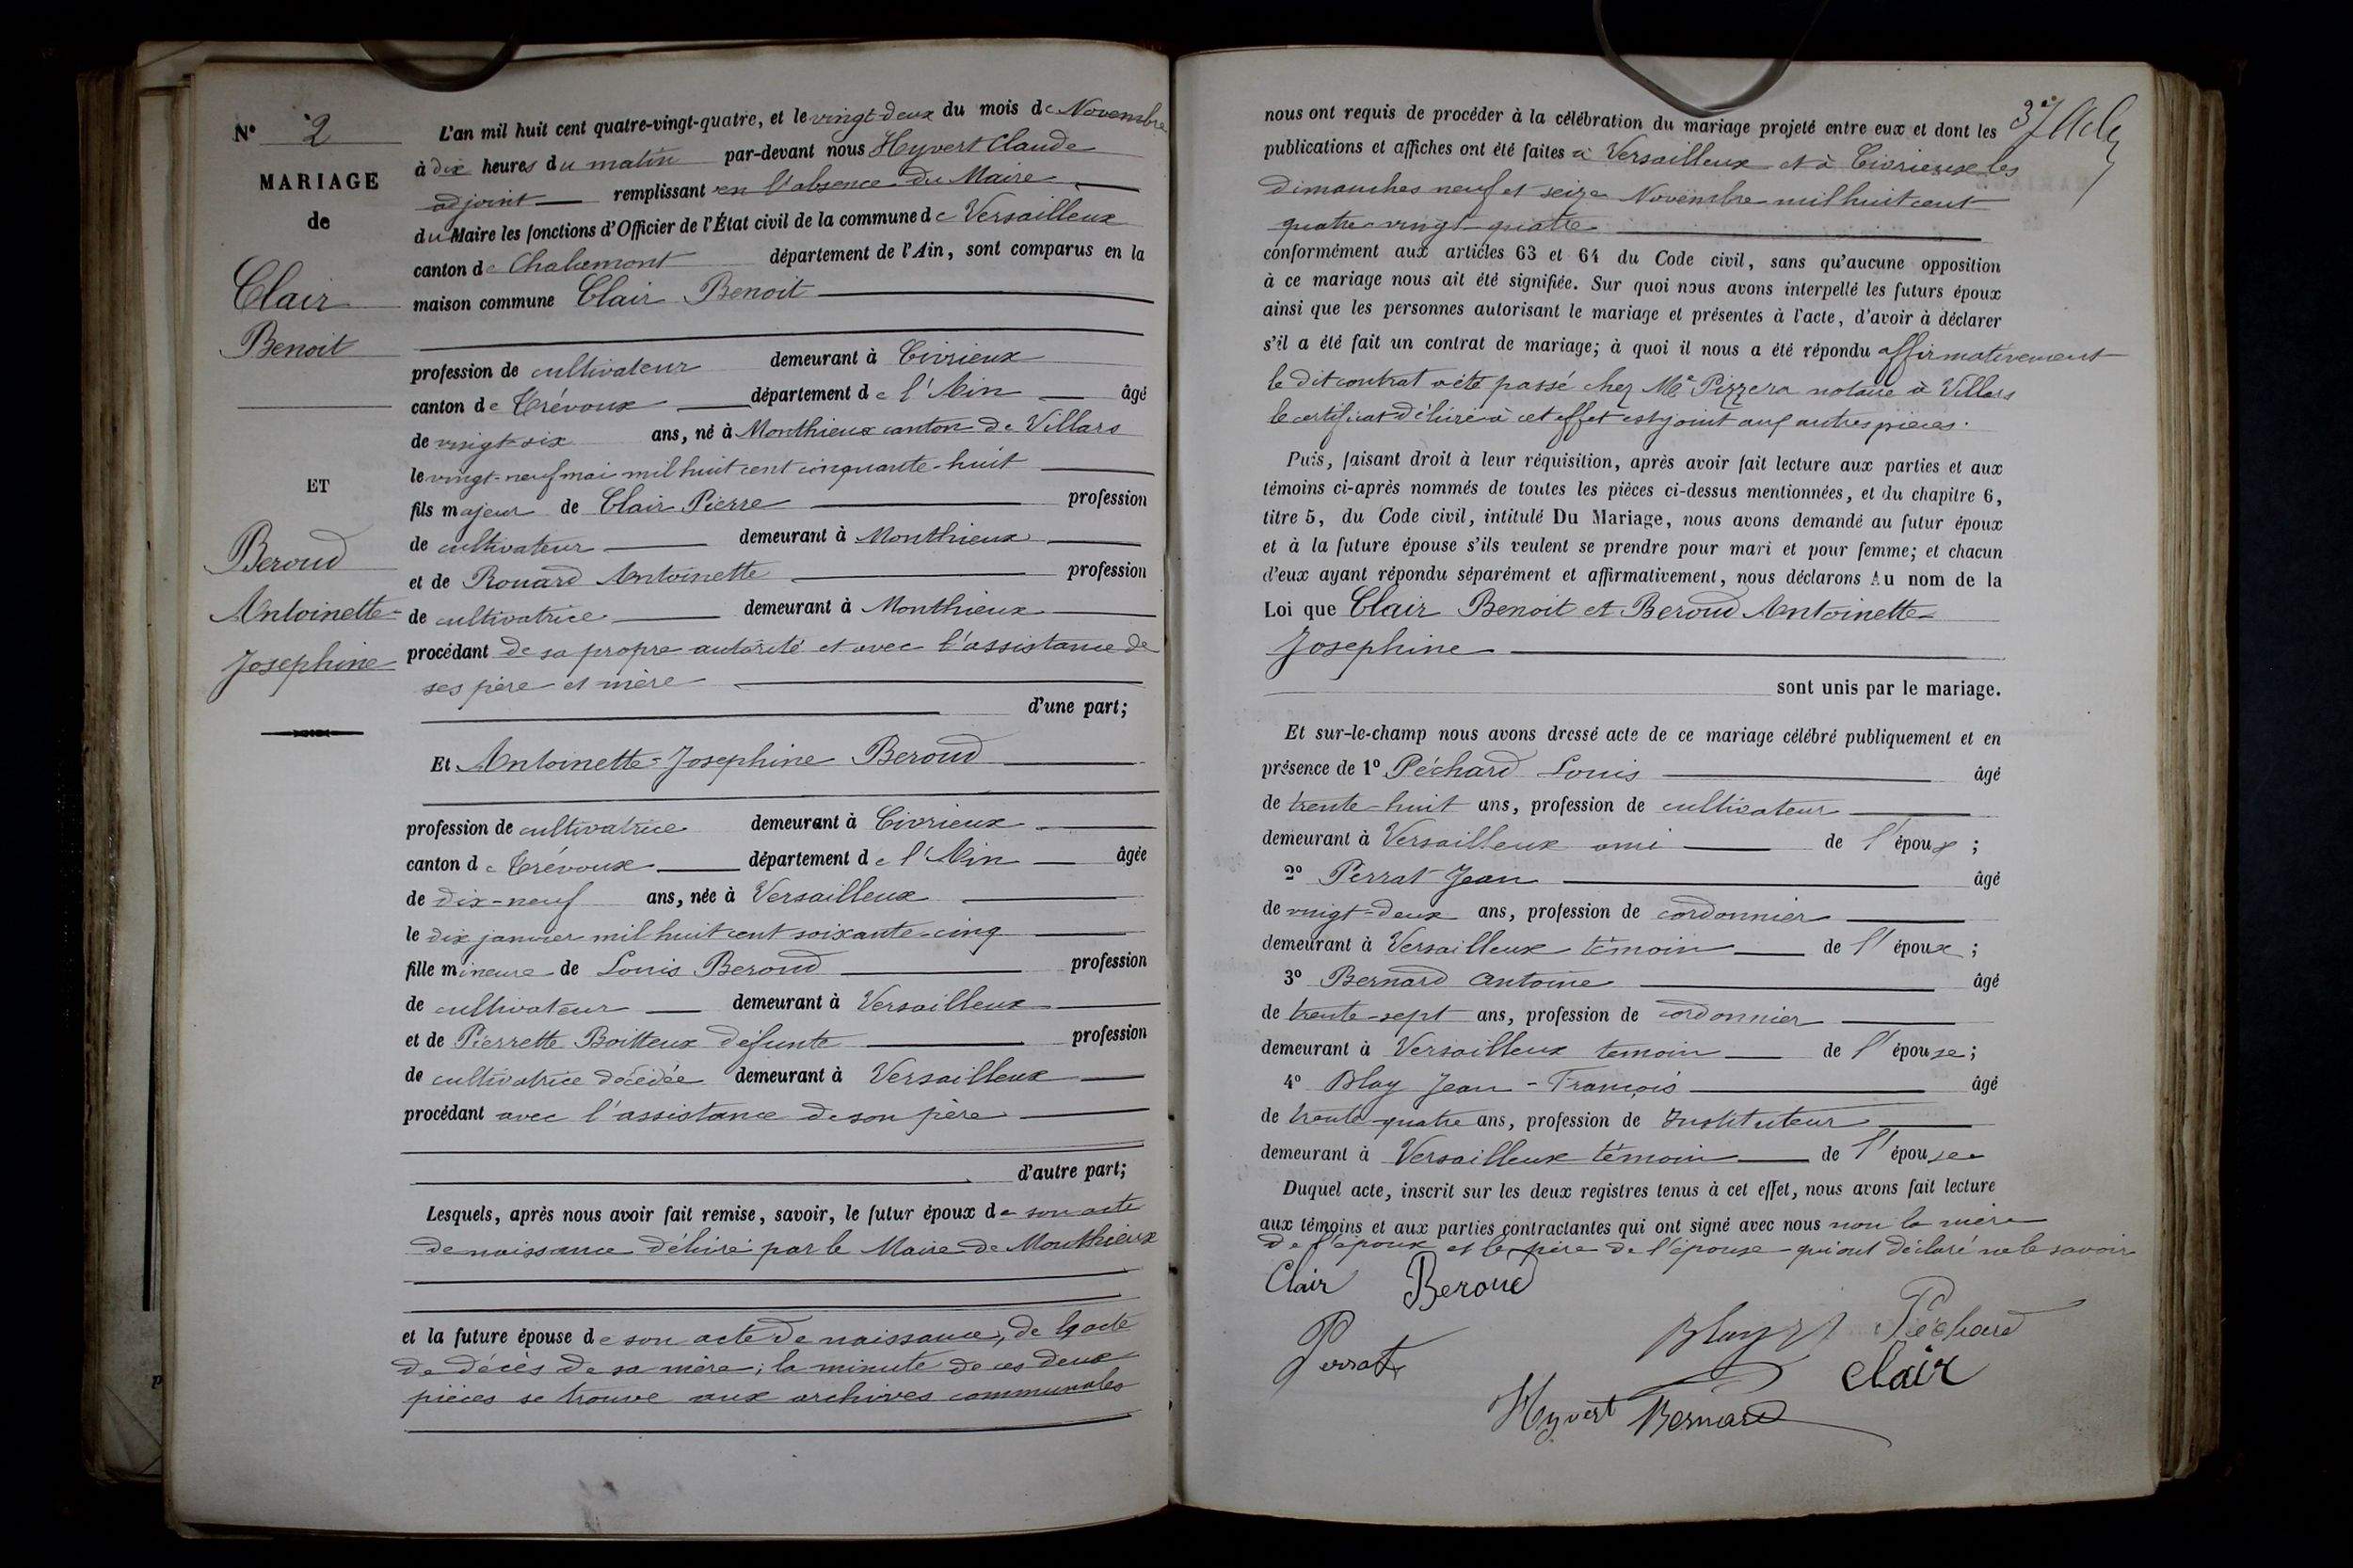 N° 2
MARIAGE
de
Clair
Benoit
ET
Beroud
Antoinette-
Josephine
L'an mil huit cent quatre-vingt-quatre, et le vingt-deux du mois de Novembre
à dix heures du matin par-devant nous Hyvert Claude
adjoint remplissant en l'absence du Maire
du Maire les fonctions d'Officier de l'État civil de la commune de Versailleux
canton de Chalamont département de l'Ain, sont comparus en la
maison commune Clair Benoit
profession de cultivateur demeurant à Civrieux
canton de Trévoux département de l'Ain âgé
de vingt-six ans, né à Monthieux canton de Villars
le vingt-neuf mai mil huit cent cinquante-huit
fils majeur de Clair Pierre profession
de cultivateur demeurant à Monthieux
et de Rouard Antoinette profession
de cultivatrice demeurant à Monthieux
procédant de sa propre autorité et avec l'assistance de
ses père et mère
d'une part;
Et Antoinette-Josephine Beroud
profession de cultivatrice demeurant à Civrieux
canton de Trévoux département de l'Ain âgée
de dix-neuf ans, née à Versailleux
le dix janvier mil huit cent soixante-cinq
fille mineure de Louis Beroud profession
de cultivateur demeurant à Versailleux
et de Pierrette Boitteux défunte profession
de cultivatrice décédée demeurant à Versailleux
procédant avec l'assistance de son père
d'autre part;
Lesquels, après nous avoir fait remise, savoir, le futur époux de son acte
de naissance délivré par le Maire de Monthieux
et la future épouse de son acte de naissance, de l'acte
de décès de sa mère; la minute de ces deux
pièces se trouve aux archives communales
3e
nous ont requis de procéder à la célébration du mariage projeté entre eux et dont les
publications et affiches ont été faites à Versailleux et à Civrieux les
dimanches neuf et seize Novembre mil huit cent
quatre-vingt-quatre
conformément aux articles 63 et 64 du Code civil, sans qu'aucune opposition
à ce mariage nous ait été signifiée. Sur quoi nous avons interpellé les futurs époux
ainsi que les personnes autorisant le mariage et présentes à l'acte, d'avoir à déclarer
s'il a été fait un contrat de mariage; à quoi il nous a été répondu affirmativement
le dit contrat a été passé chez Me Pizzera notaire à Villars
le certificat délivré à cet effet est joint aux autres pièces.
Puis, faisant droit à leur réquisition, après avoir fait lecture aux parties et aux
témoins ci-après nommés de toutes les pièces ci-dessus mentionnées, et du chapitre 6,
titre 5, du Code civil, intitulé Du Mariage, nous avons demandé au futur époux
et à la future épouse s'ils veulent se prendre pour mari et pour femme; et chacun
d'eux ayant répondu séparément et affirmativement, nous déclarons Au nom de la
Loi que Clair Benoit et Beroud Antoinette
Josephine
sont unis par le mariage.
Et sur-le-champ nous avons dressé acte de ce mariage célébré publiquement et en
présence de 1° Péchard Louis âgé
de trente-huit ans, profession de cultivateur
demeurant à Versailleux ami de l'époux;
2° Perrat Jean âgé
de vingt-deux ans, profession de cordonnier
demeurant à Versailleux témoin de l'époux;
3° Bernard Antoine âgé
de trente-sept ans, profession de cordonnier
demeurant à Versailleux temoin de l'épouse;
4° Blay Jean-François âgé
de trente-quatre ans, profession de Instituteur
demeurant à Versailleux témoin de l'épouse
Duquel acte, inscrit sur les deux registres tenus à cet effet, nous avons fait lecture
aux témoins et aux parties contractantes qui ont signé avec nous non la mère
de l'époux et le père de l'épouse qui ont déclaré ne le savoir
Clair Beroud
Perrat Blay Péchard
Clair
Hyvert Bernard